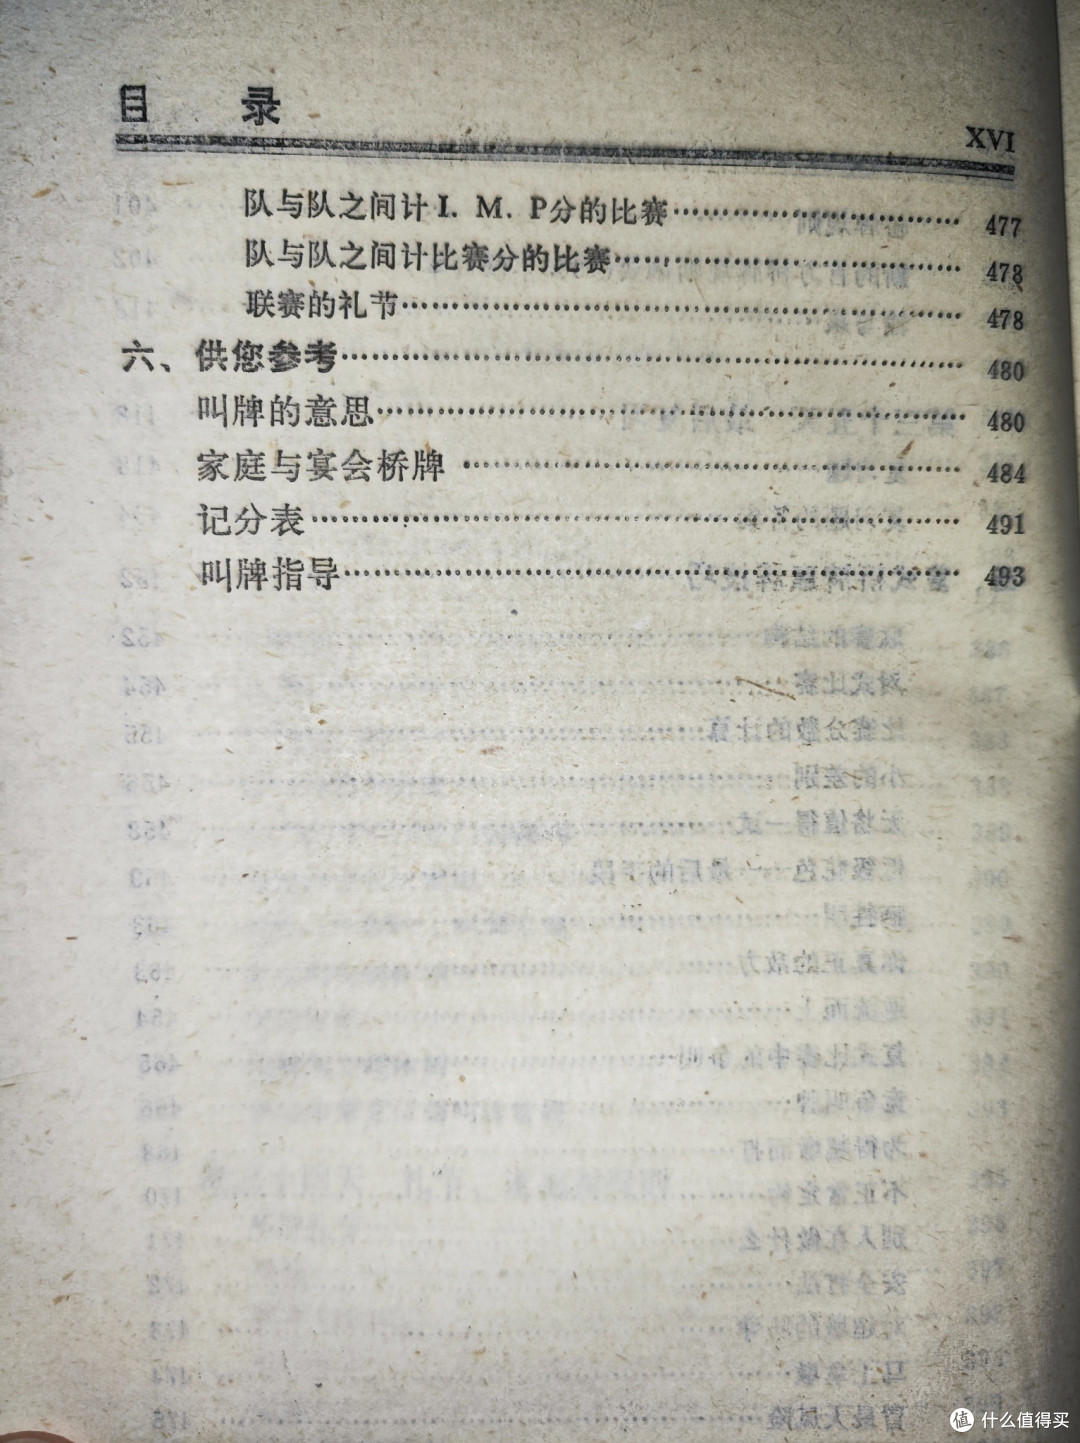 目 录
XVI
队与队之间计 I. M. P分的比赛…………………… 477
队与队之间计比赛分的比赛…………………… 478
联赛的礼节…………………… 478
六、供您参考…………………… 480
叫牌的意思…………………… 480
家庭与宴会桥牌…………………… 484
记分表…………………… 491
叫牌指导…………………… 493
值 什么值得买